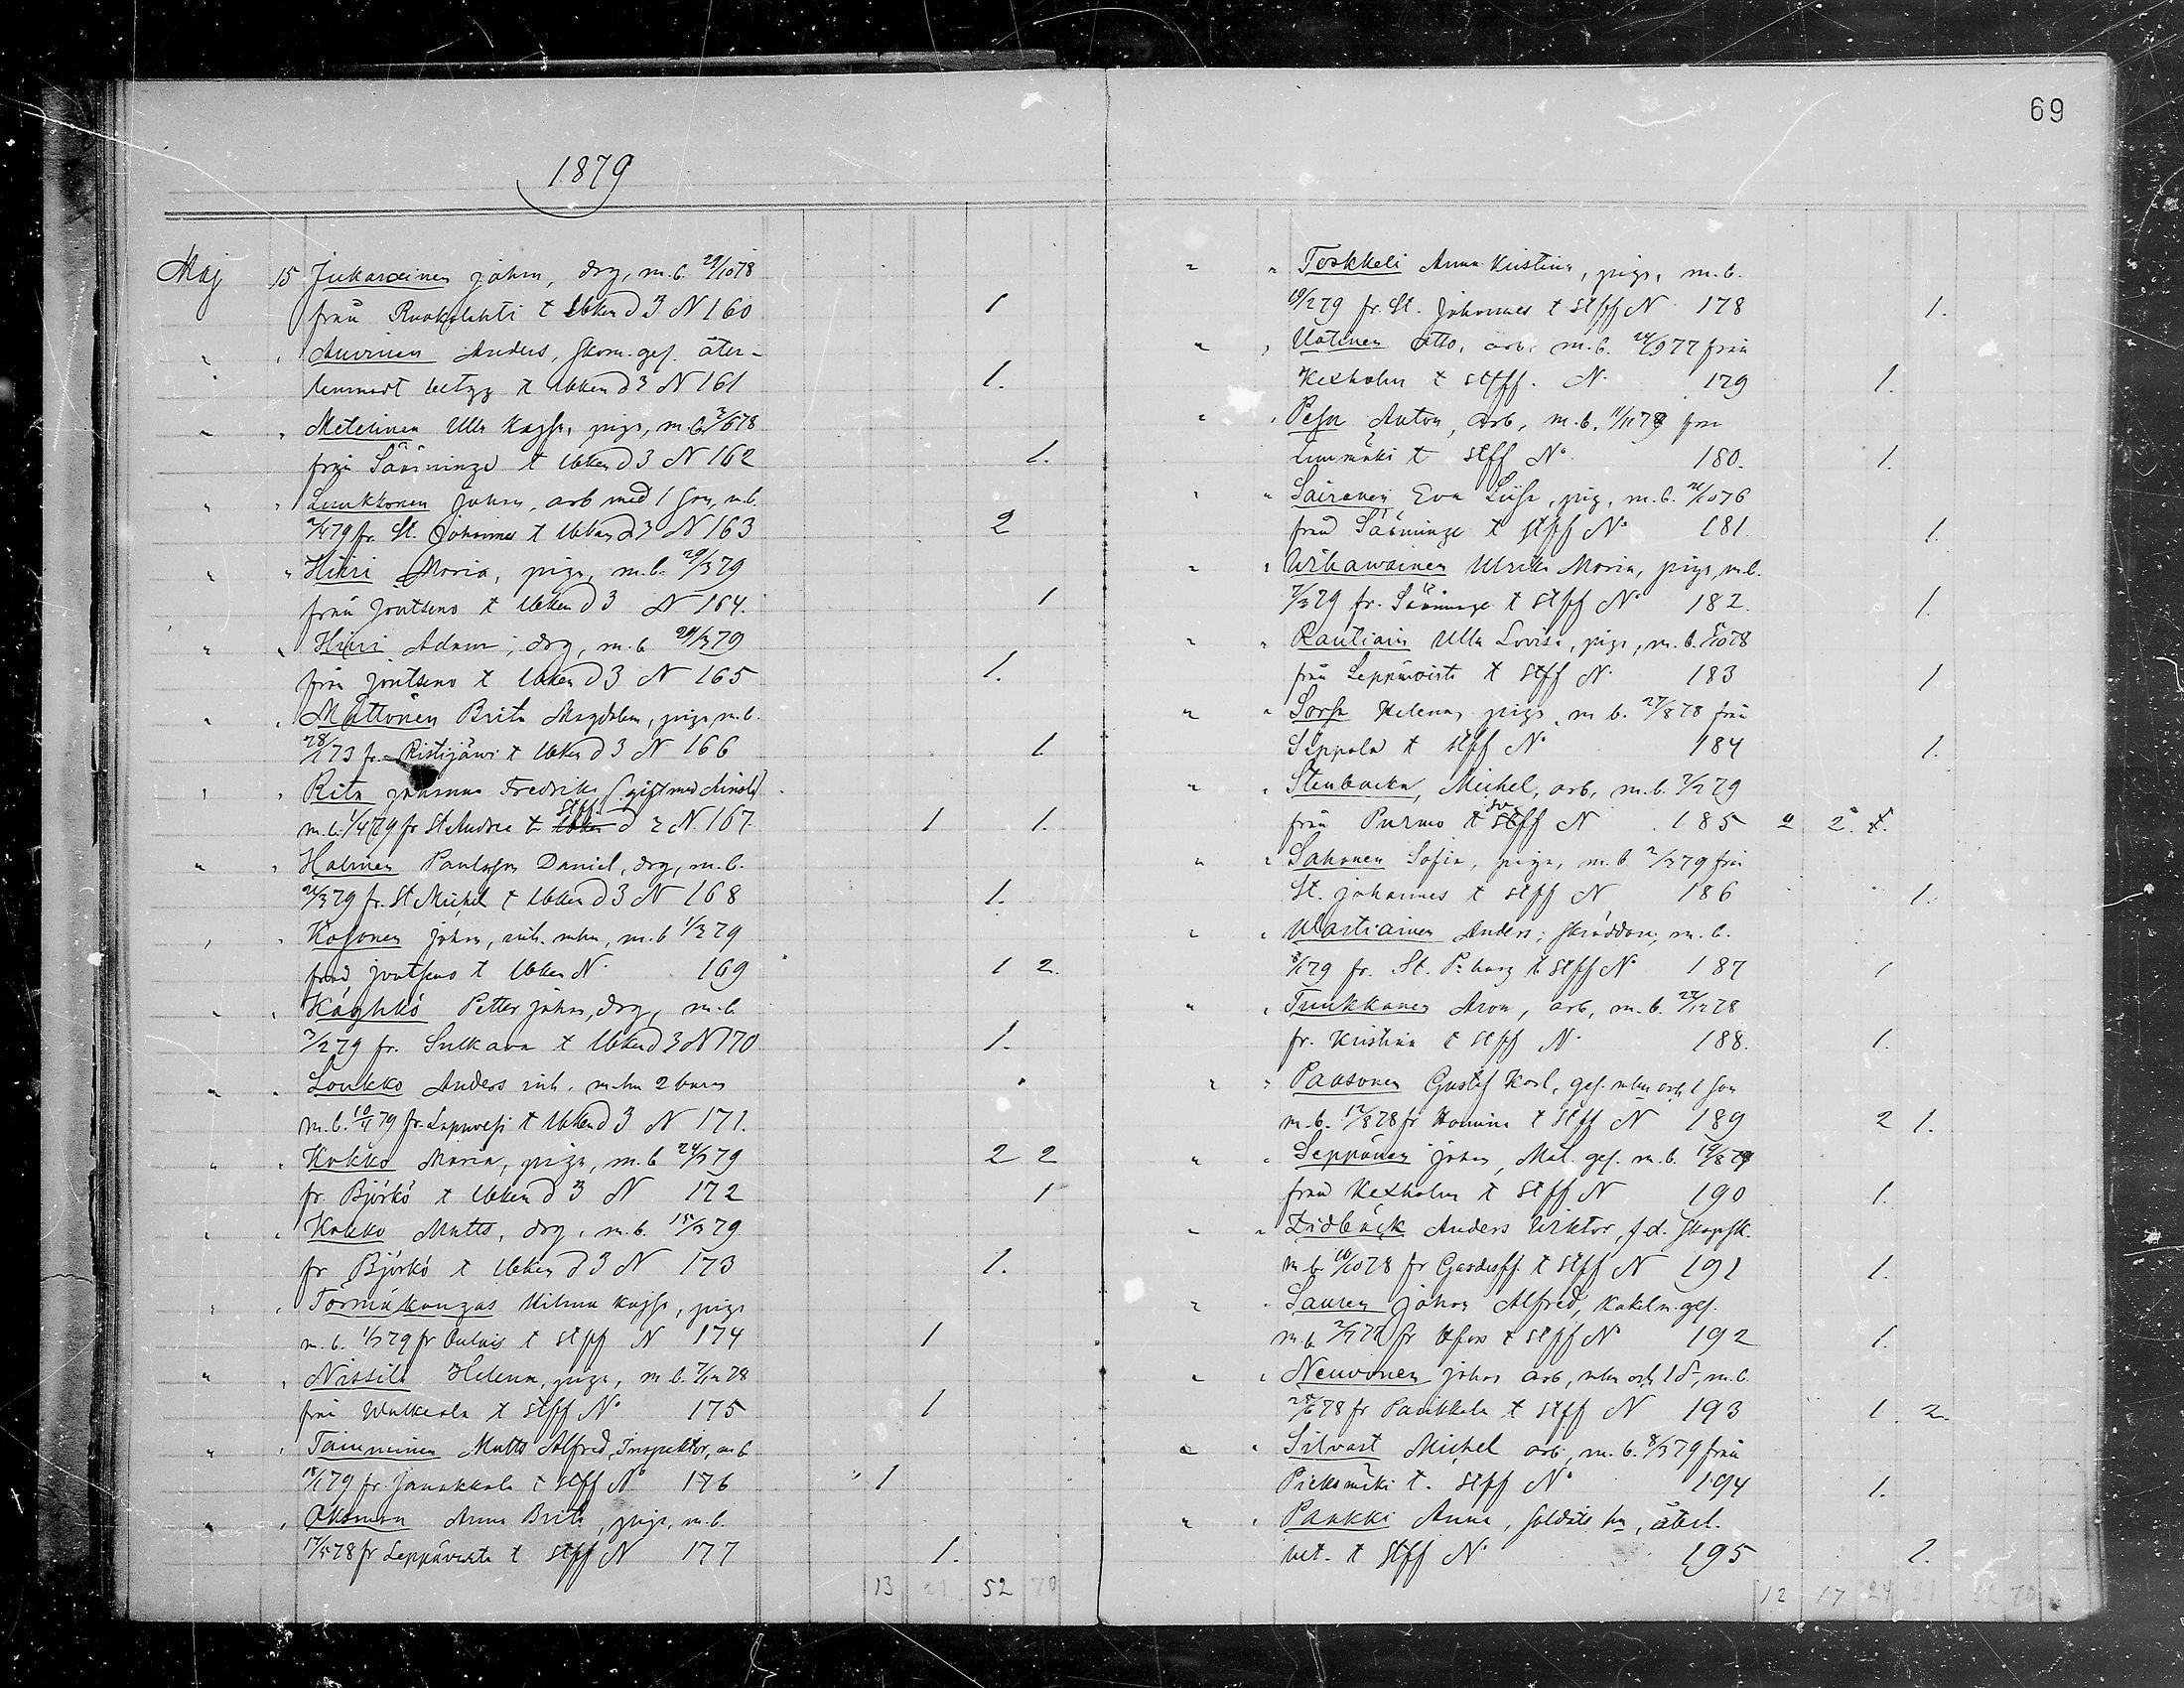 69
1879
Maj 15 Jukarainen Johan, drg, m.b. 29/10 78
från Ruokolahti t lbken d 3 N 160 1
" " Auvinen Anders, skom. ges. åter-
lemnadt betyg t lbken d 3 N 161 1.
" " Metelinen Ulla Kajsa, piga, m.b. 3/6 78
från Sääminge t lbken d 3 N 162 1.
" " Luukkonen Johan, arb med 1 son, m.b.
79 fr. St. Johannes t lbken d 3 N 163 2
" " Hinri Maria, piga, m.b. 29/3 79
från Joutseno t lbken d 3 N 164. 1
" " Hinri Adam, drg, m.b 29/3 79
från Joutseno t lbken d 3 N 165 1.
" " Mattonen Brita Magdalena, piga, m.b.
28/1 73 fr. Ristijärvi t lbken d 3 N 166 1.
" " Rita Johanna Fredrika (gift med Arnold)
m.b. 1/4 79 fr St Andree t stff d 2 N. 167 1 1.
" " Halinen Paulsson Daniel, drg, m.b.
21/3 79 fr. St Michel t lbken d 3 N 168 1.
" " Kosonen Johan, inh. mhu, m.b 1/3 79
från Joutseno t lbken N. 169 1 2.
" " Käyhkö Petter Johan, drg, m.b
3/2 79 fr. Sulkava t lbken d 3 N 170 1.
" " Loukko Anders inh. mhu 2 barn
m.b. 10/4 79 fr. Lapvesi t lbken d 3 N 171.
" " Kokko Maria, piga, m.b 24/3 79 2 2
fr. Björkö t lbken d 3 N 172 1
" " Kokko Matts, drg, m.b. 15/3 79
fr Björkö t lbken d 3 N 173 1.
" " Törmäkangas Wilma Kajsa, piga
m.b. 1/3 79 fr Oulais t stff N 174 1
" " Nissilä Helena, piga, m.b. 7/12 78
från Walkeala t stff N° 175 1
" " Tamminen Matts Alfred, Inspektor, m.b
18/1 79 fr. Janakkala t stff N° 176 1
" " Okonen Anna Brita, piga, m.b.
17/5 78 fr Leppävirta t stff N 177 1.
13 21 52 70
" " Torkkeli Anna Kristina, piga, m.b.
19/2 79 fr. St. Johannes t stff N 178 1.
" " Uotinen Otto, arb, m.b. 24/9 77 från
Kexholm t stff. N. 179 1.
" " Pesu Anton, arb, m.b. 11/11 78 från
Lumimäki t stff N° 180. 1.
" " Sairanen Eva Liisa, pig, m.b. 21/10 76
från Sääminge t stff N° 181. 1.
" " Wihawainen Ulrika Maria, piga, m.b.
7/3 79 fr. Sääminge t stff N° 182. 1.
" " Rautiain Ulla Lovisa, piga, m.b. 5/10 78
från Leppävirta t stff N. 183 1
" " Sorsa Helena, piga, m.b. 27/8 78 från
Seppola t stff N° 184 1.
" " Stenbacka, Michel, arb, m.b. 7/2 79
från Purmo t sv stff N 185 2.
" " Sahonen Sofia, piga, m.b. 2/3 79 från
St. Johannes t stff N 186 1.
" " Wlastiainen Anders, skräddare, m.b.
8/1 79 fr. St. P:burg t stff N° 187 1
" " Truukkanen Aron, arb, m.b. 29/12 78
fr. Kristina t stff N. 188. 1.
" " Paasonen Gustaf Karl, ges. mhu och 1 son
m.b. 12/8 78 fr Kamina t stff N 189 2 1.
" " Seppänen Johan, Mål. ges. m.b. 19/8 79
från Kexholm t stff N 190 1.
" " Lidbäck Anders Wiktor, f.d. skepsk.
m.b. 10/10 78 fr Gardesff. t stff N 191 1.
" " Lauren Johan Alfred, Kakelm. ges.
m.b 2/7 72 fr Hfors t stff N° 192 1.
" " Neuvonen Johan arb, mhu och 1 d, m.b.
25/6 78 fr Parikkala t stff N 193 1. 2.
" " Silvast Michel arb, m.b. 8/3 79 från
Pieksmäki t. stff N° 194 1.
" " Paukki Anna, soldats hu, återl.
bet. t stff N° 195 1.
12 17 24 21 52 70